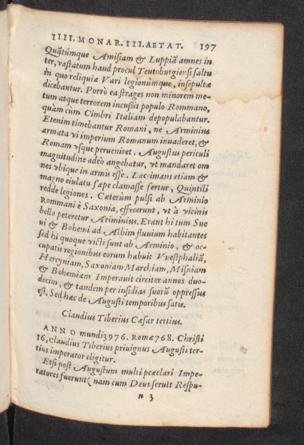 IIII. MONAR. III. AETAT. 197
Quātúmque Amisiam & Luppiā amnes in
ter, vastatum haud procul Teutoburgiensi saltu
in quo reliquiæ Vari legionúmque, insepultæ
dicebantur. Porrò ea strages non minorem me-
tum atque terrorem incussit populo Rommano,
quàm cum Cimbri Italiam depopulabantur.
Etenim timebantur Romani, ne Arminius
armata vi imperium Romanum inuaderet, &
Romam vsque perueniret. Augustus periculi
magnitudine adeò angebatur, vt mandaret om
nes vbique in armis esse. Lacrimans etiam &
magno eiulatu sæpe clamasse fertur, Quintili
redde legiones. Cæterum pulsi ab Arminio
Rommani è Saxonia, effecerunt, vt à vicinis
bello peteretur Ariminius. Erant hi tum Sue
ui & Bohemi ad Albim fluuium habitantes
sed hi quoque victi sunt ab Arminio, & oc-
cupatis regionibus eorum habuit VVestphaliā,
Hercyniam, Saxoniam Marchiam, Misniam
& Bohemiam Imperauit circiter annos duo-
decim, & tandem per insidias suorū oppressus
est. Sed hæc de Augusti temporibus satis.
Claudius Tiberius Cæsar tertius.
ANNO mundi 3976. Romæ 768. Christi
16, Claudius Tiberius priuignus Augusti ter-
tius imperator eligitur.
Etsi post Augustum multi præclari Impe-
ratores fuerunt (nam cum Deus seruit Respu-
n 3